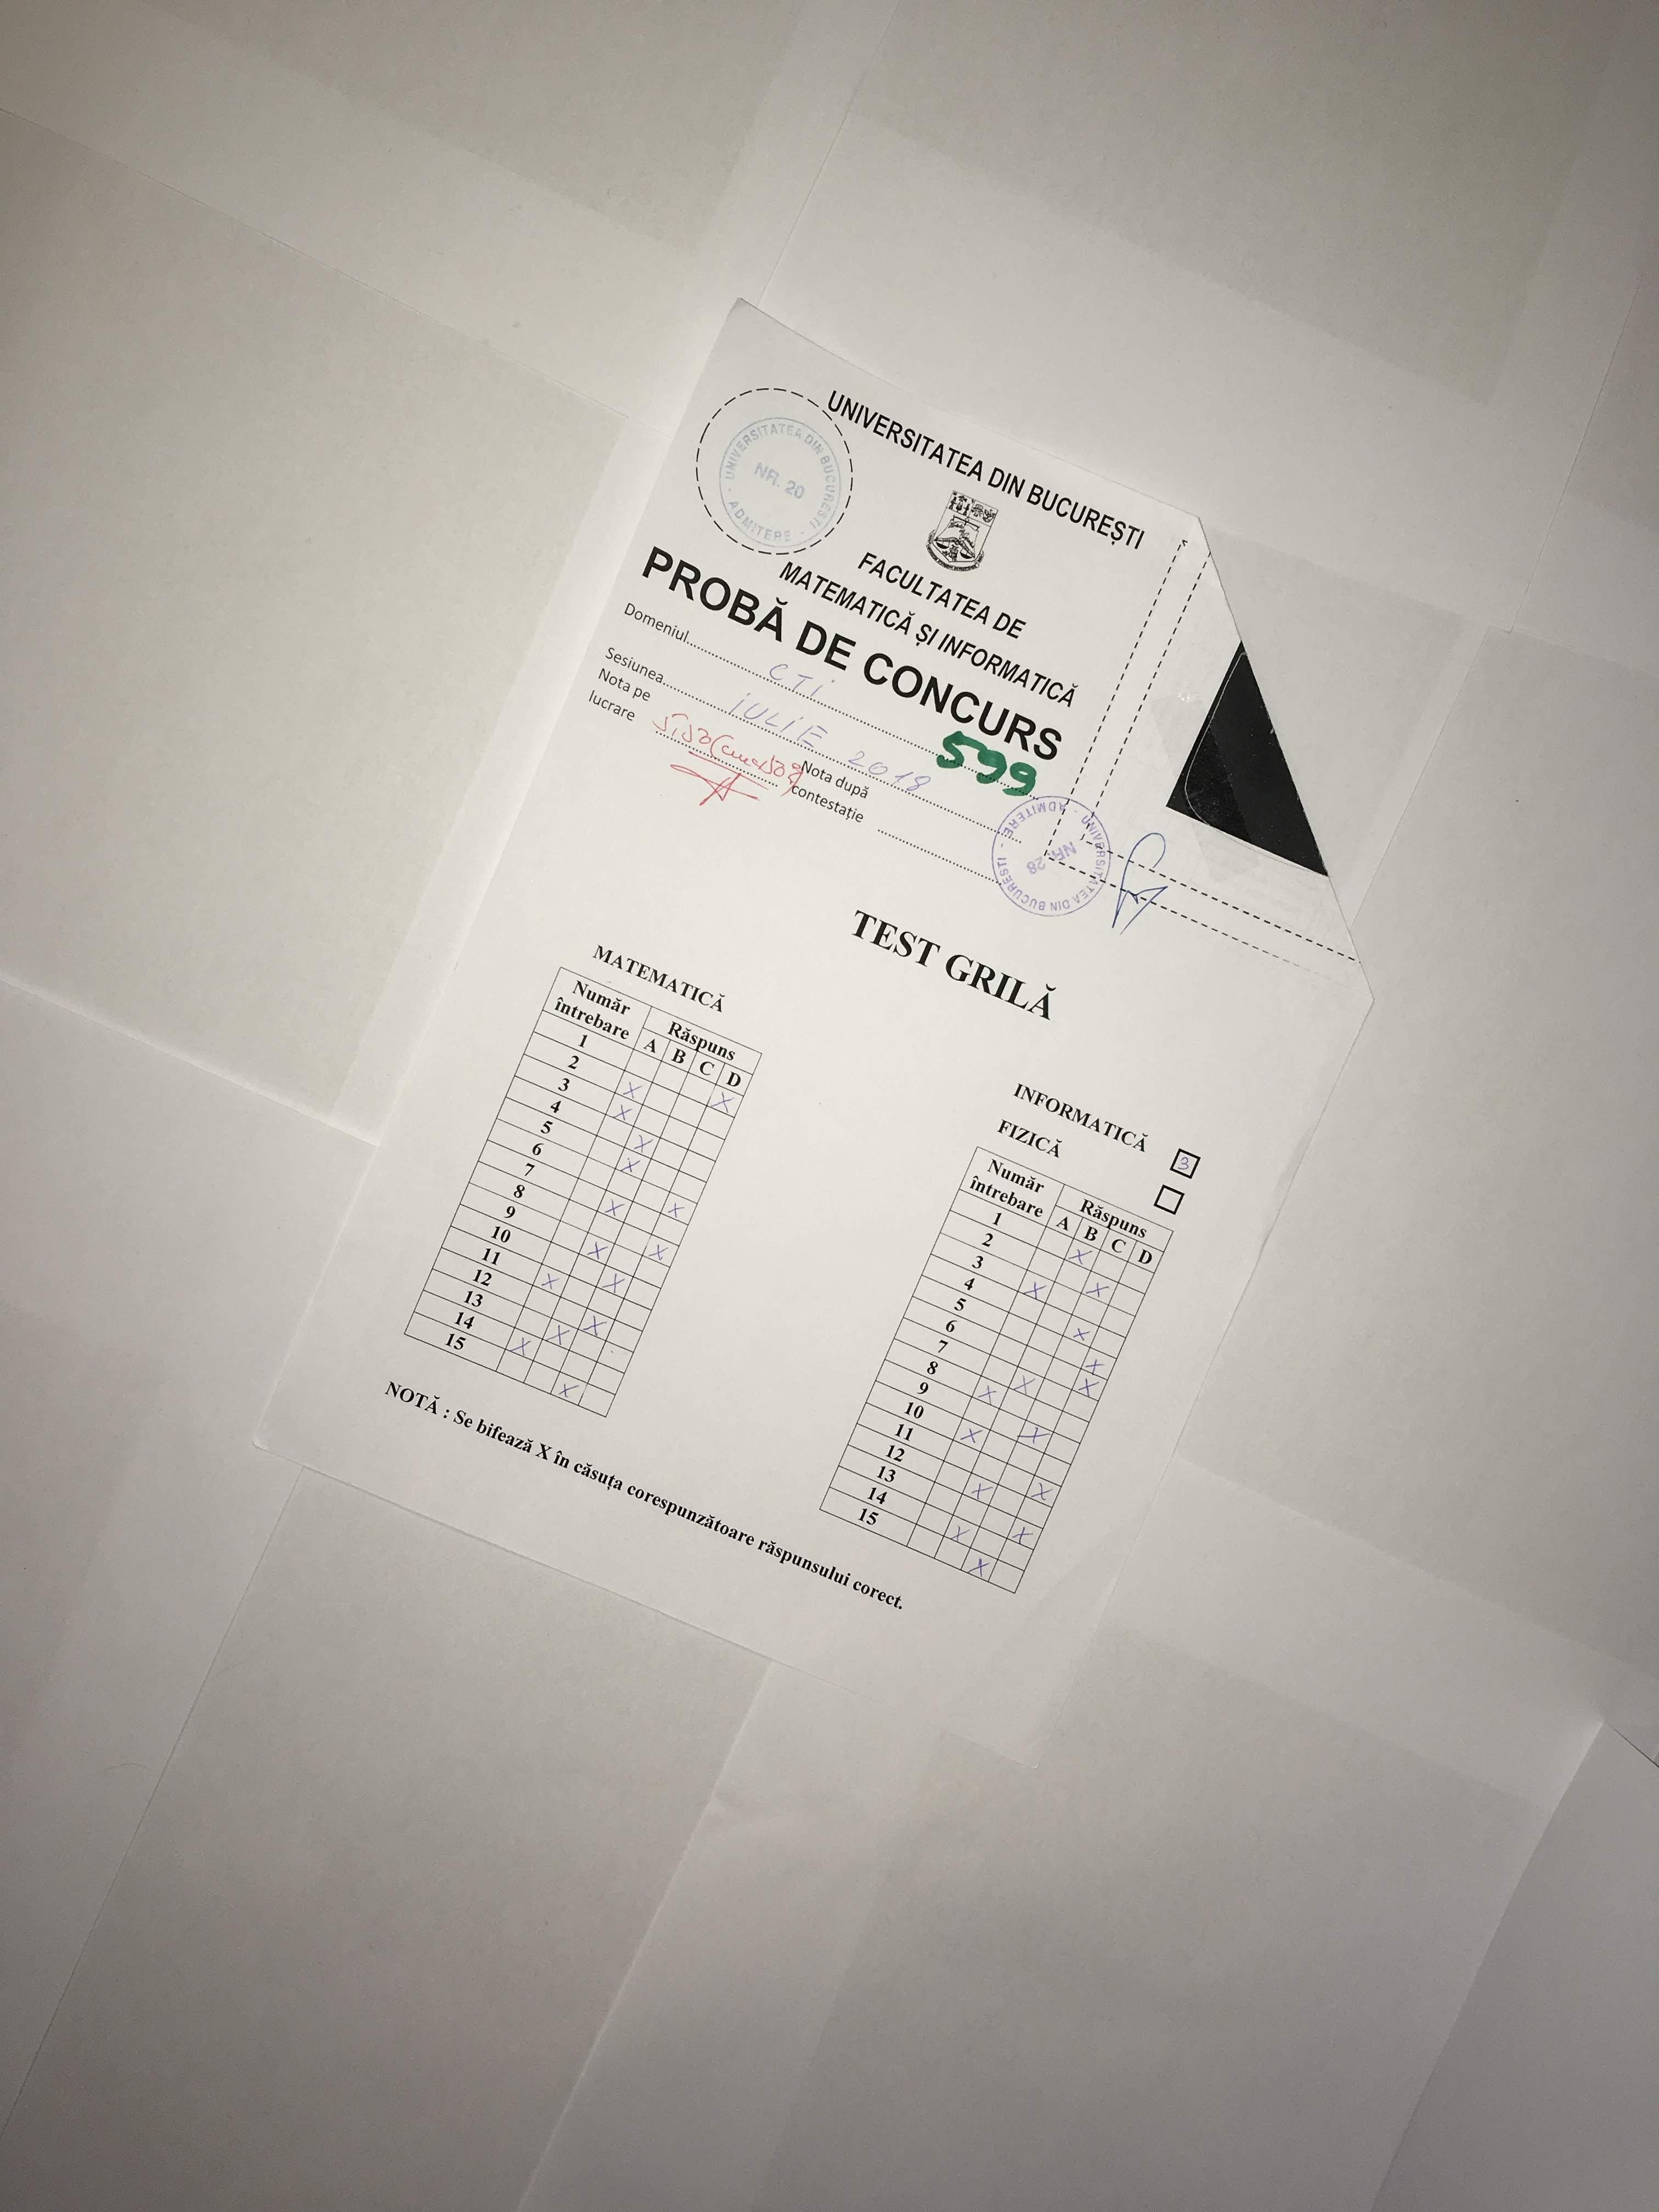 UNIVERSITATEA DIN BUCUREȘTI
UNIVERSITATEA DIN BUCURESTI
NR. 20
ADMITERE
FACULTATEA DE
MATEMATICĂ ȘI INFORMATICĂ
PROBĂ DE CONCURS
Domeniul CTi
599
Sesiunea iULiE 2018
Nota pe
lucrare
Nota după
contestație
UNIVERSITATEA DIN BUCURESTI
NR. 28
ADMITERE
TEST GRILĂ
MATEMATICĂ
Număr
întrebare
Răspuns
A B C D
1
2 X X
3 X
4 X
5 X
6 X
7 X
8 X
9 X X
10 X
11 X
12 X
13 X
14 X
15 X
INFORMATICĂ 3
FIZICĂ
Număr
întrebare
Răspuns
A B C D
1 X
2 X
3 X
4 X
5 X
6 X
7 X
8 X
9 X
10 X
11 X
12 X
13 X
14 X
15 X
NOTĂ : Se bifează X în căsuța corespunzătoare răspunsului corect.